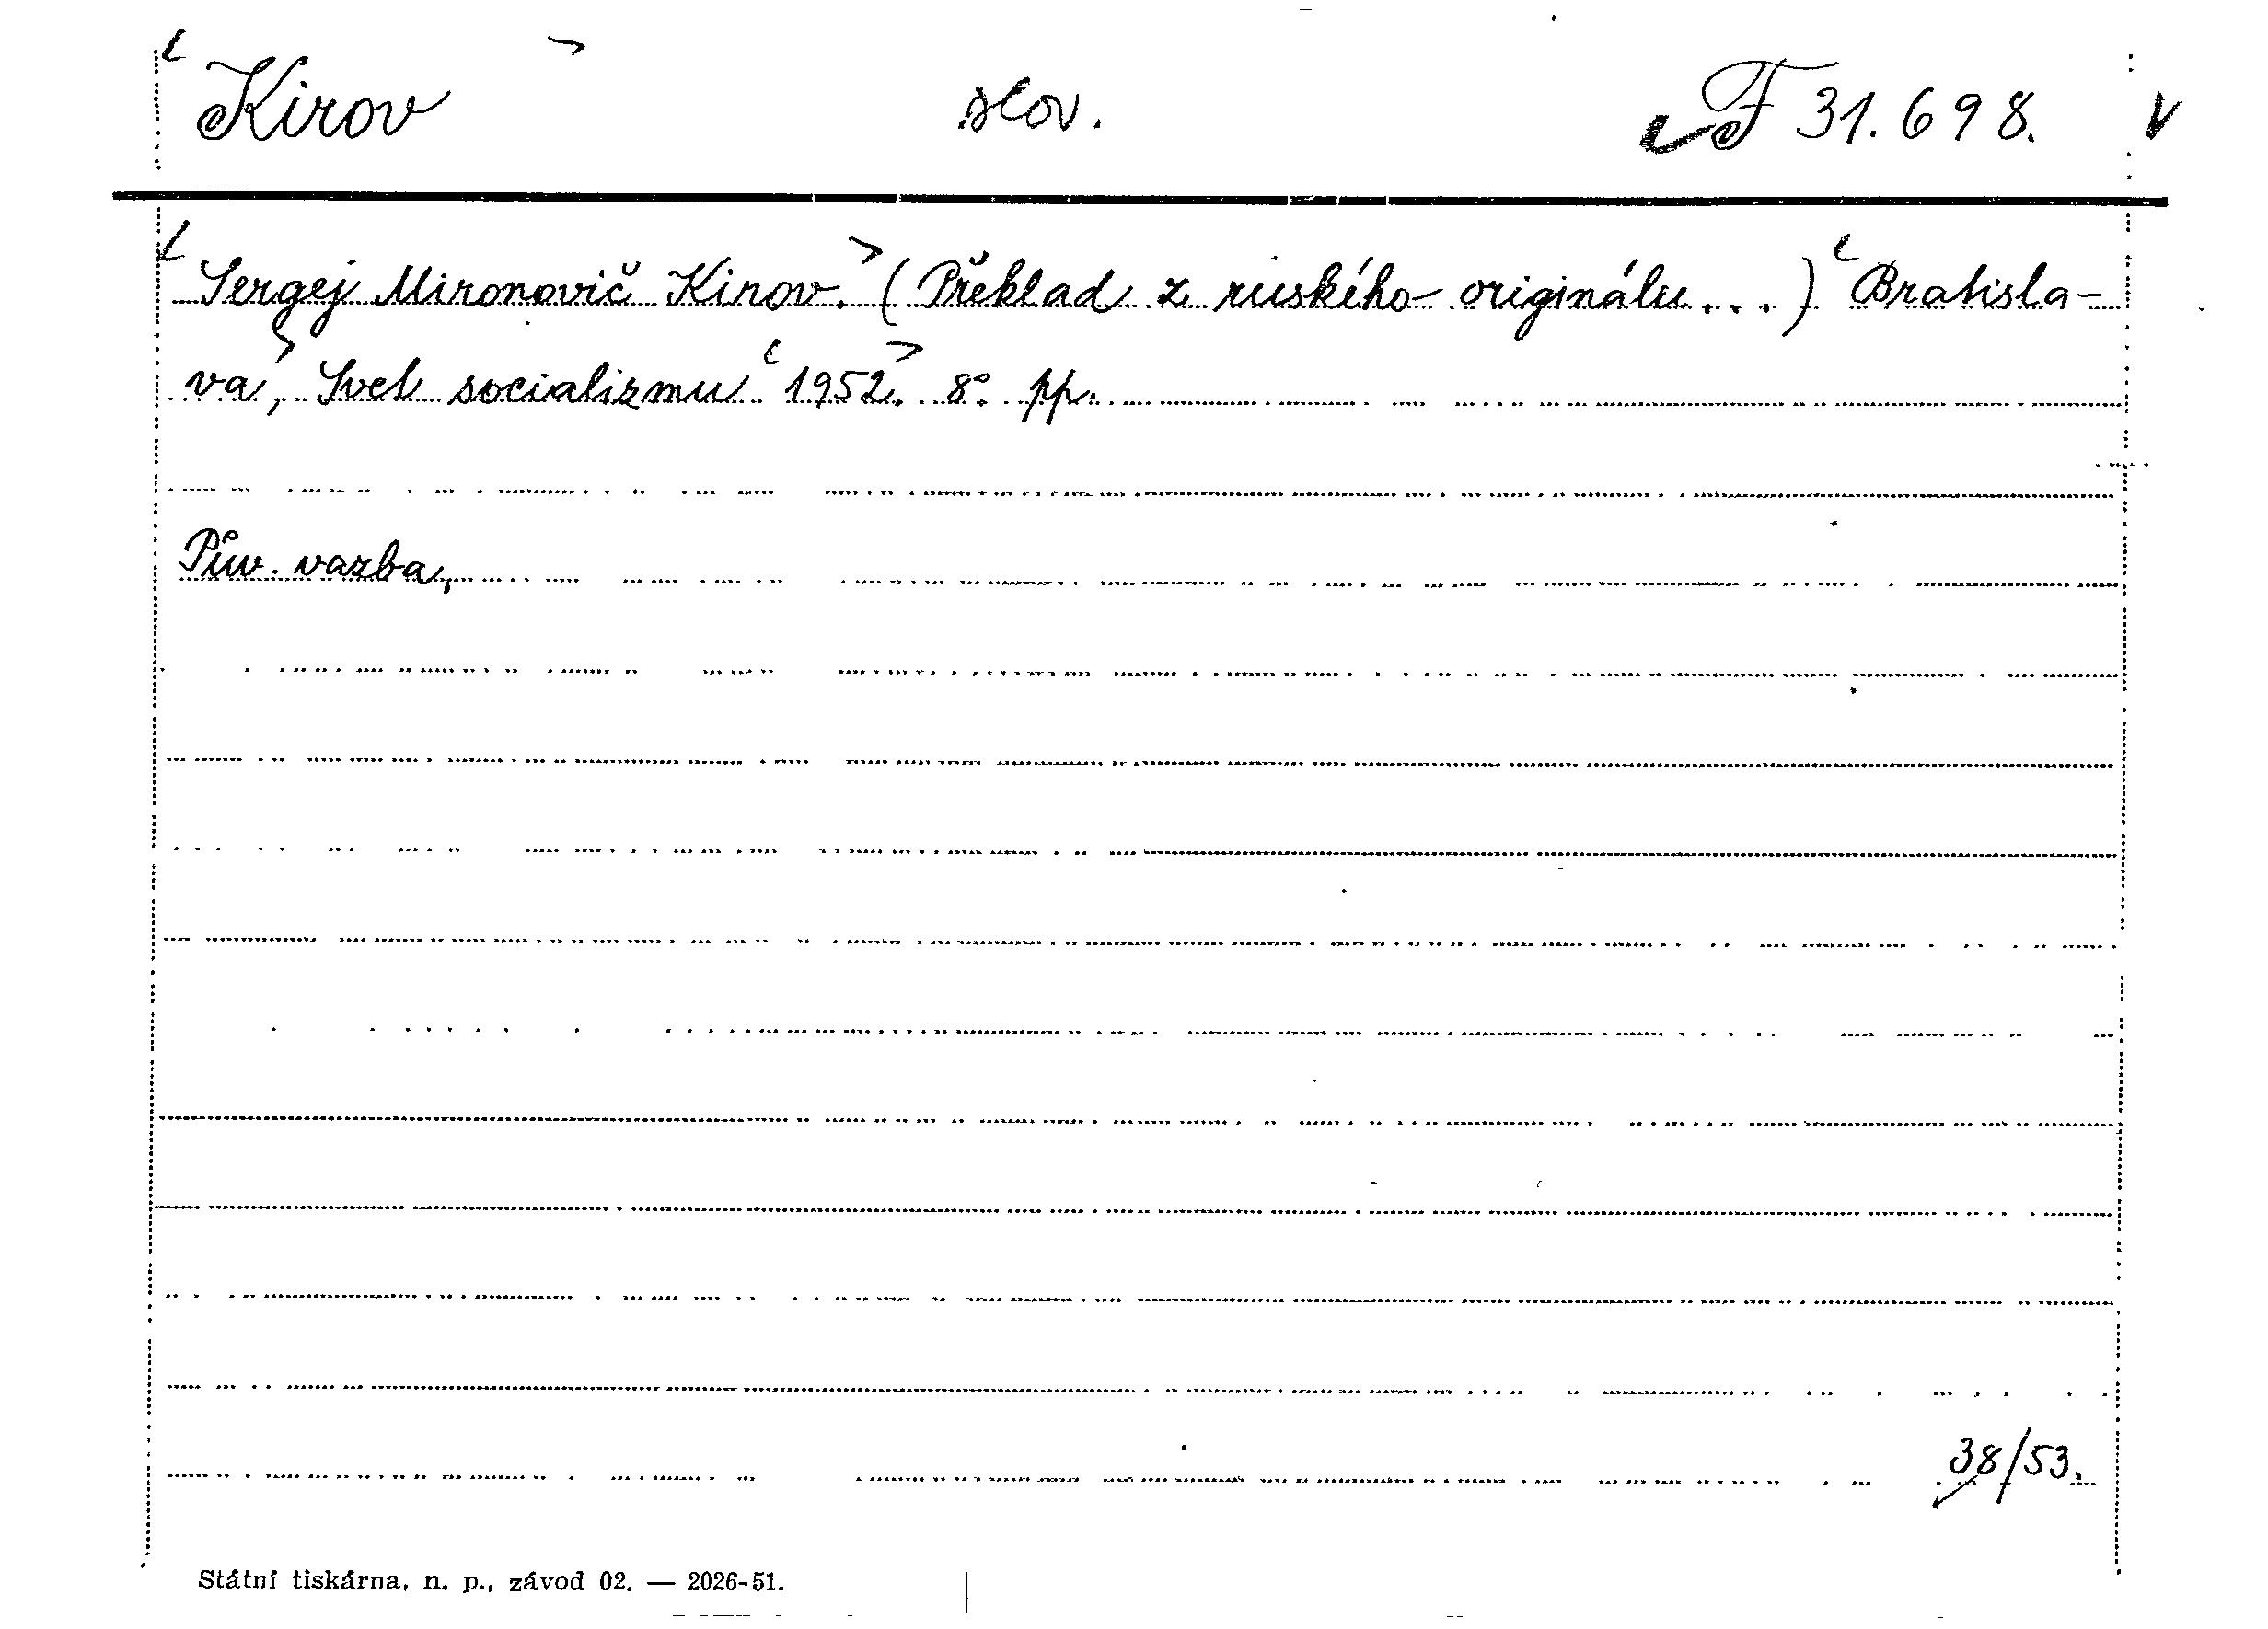 Kirov slov. F 31.698.
Sergej Mironovič Kirov. (Překlad z ruského originálu...) Bratisla-
va, Svet socializmu 1952. 8° pp.
Pův. vazba,
38/53.
Státní tiskárna, n. p., závod 02. — 2026-51.